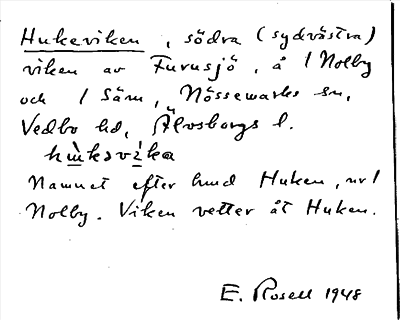 Hukeviken, södra (sydvästra)
viken av Furusjö, å 1 Nolby
och 1 Säm, Nössemarks sn,
Vedbo hd, Älvsborgs l.
Namnet efter hmd Huken, nr 1
Nolby. Viken vetter åt Huken.
E. Rosell 1948